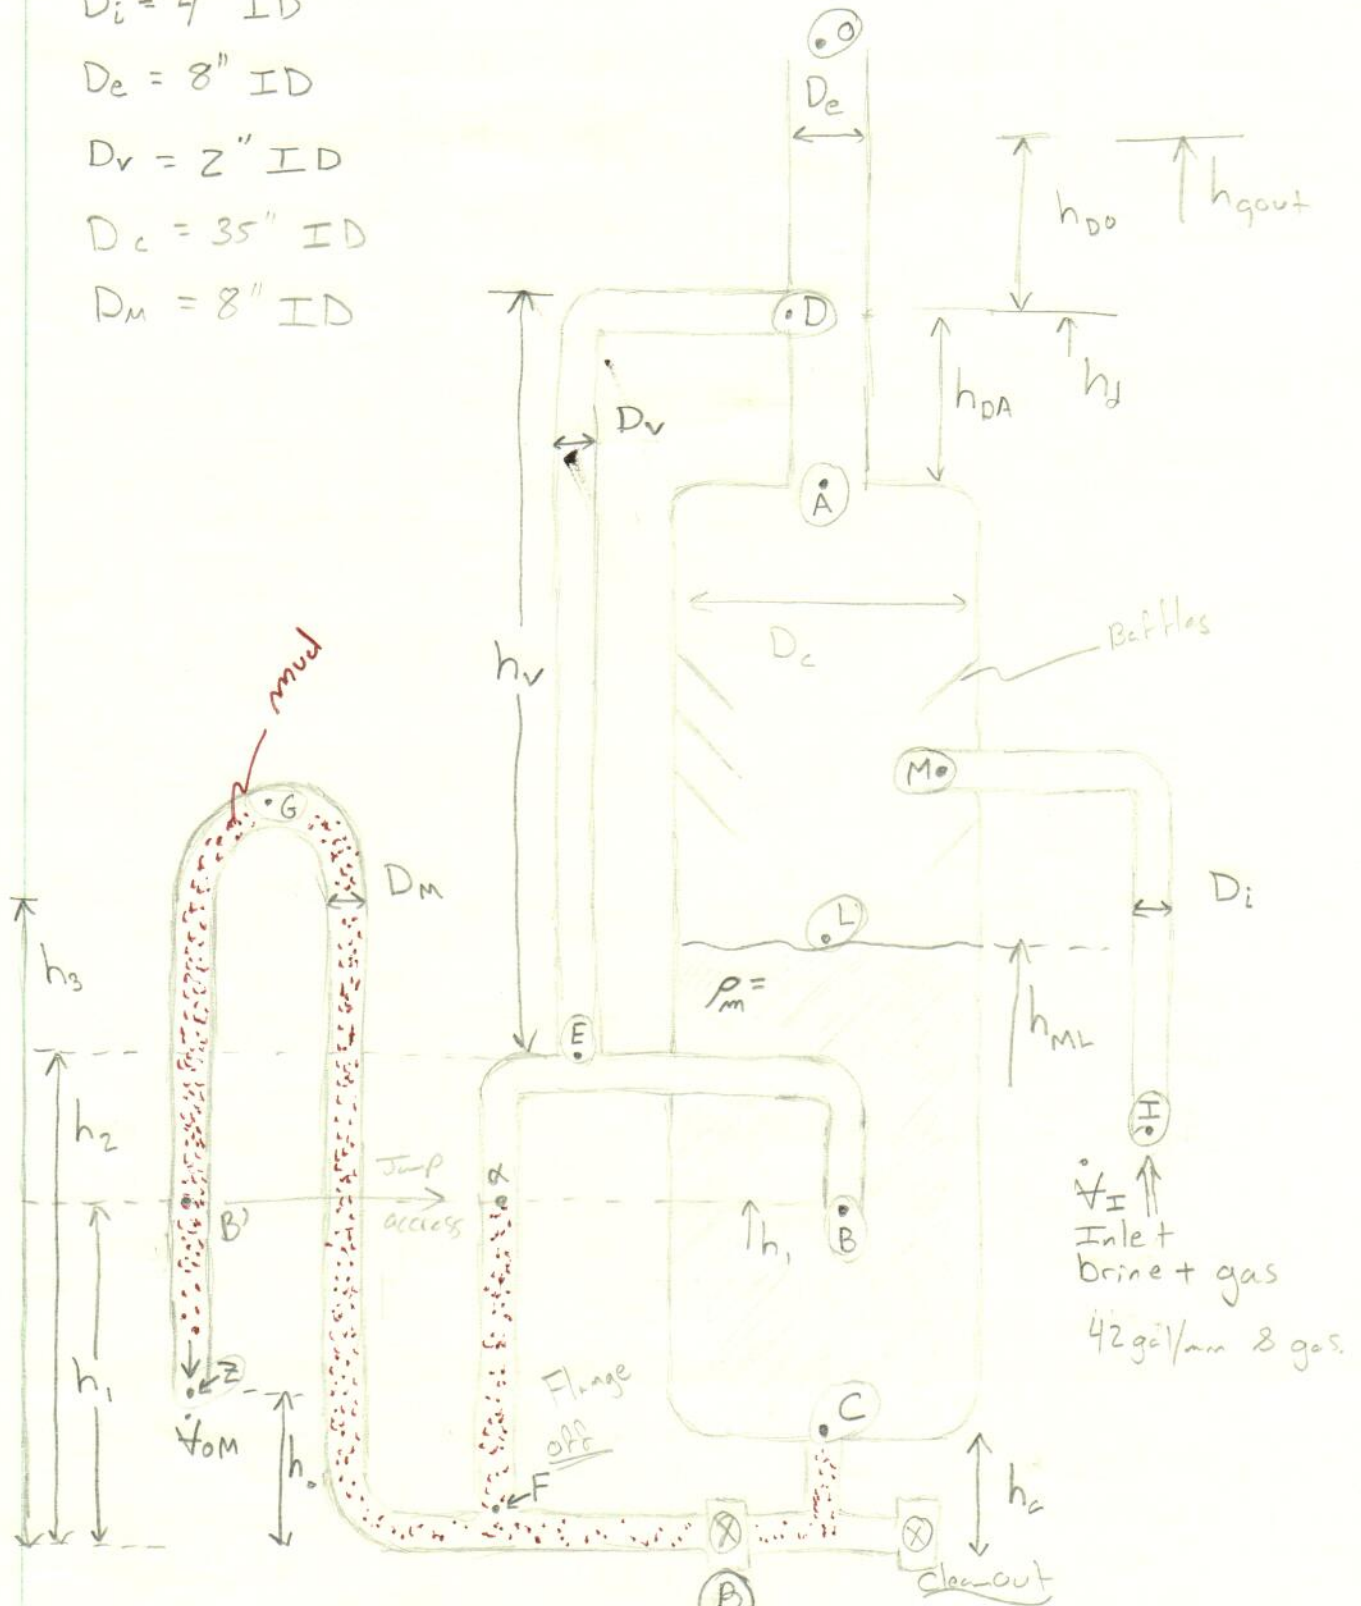 Di = 4" ID
De = 8" ID
Dv = 2" ID
Dc = 35" ID
DM = 8" ID
O
De
hDO
hgout
D
hDA
hd
Dv
A
Dc
Baffles
hv
mud
M
G
DM
Di
L
h3
ρm =
hML
E
I
h2
α
Jump
across
B'
h1
B
V̇I
Inlet
brine + gas
42 gal/min & gas.
h1
Flange
off
C
Z
V̇OM
ho
F
hc
B
Cleanout